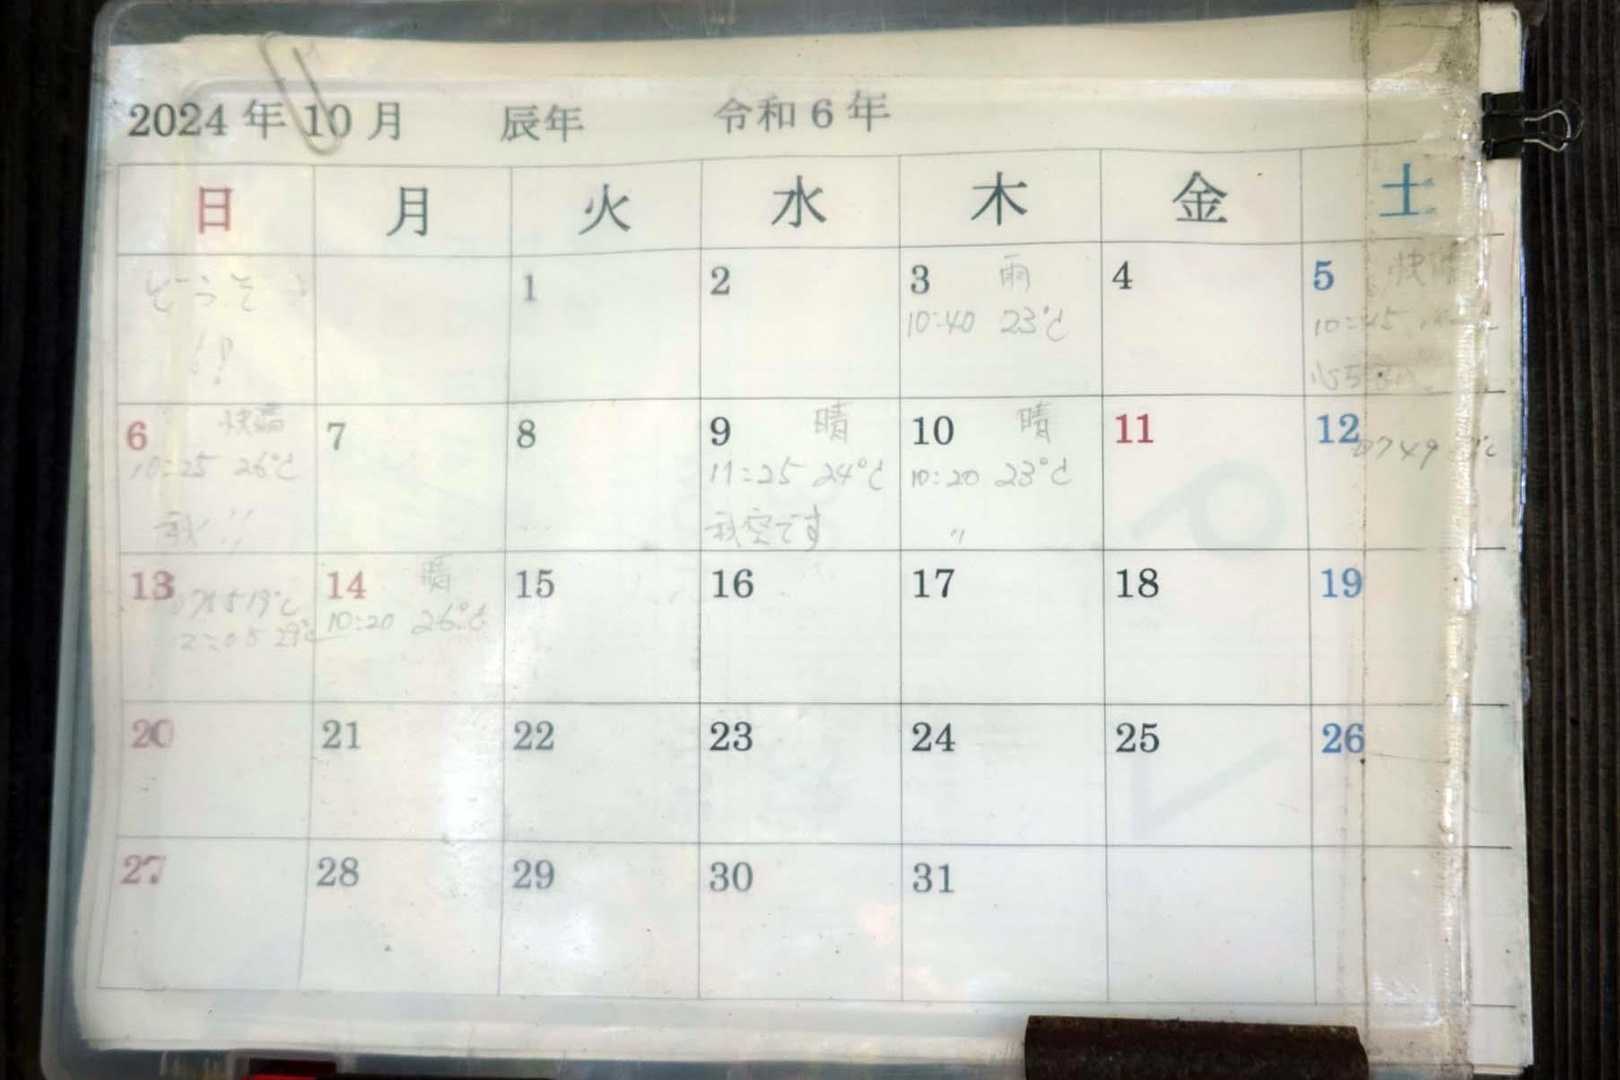 2024年10月 辰年 令和6年
日 月 火 水 木 金 土
どうぞ
!!
1
2
3 雨
10:40 23℃
4
5 快晴
10:45
6 快晴
10:25 26℃
秋!!
7
8
9 晴
11:25 24℃
秋空です
10 晴
10:20 23℃
〃
11
12
13
14 晴
10:20 26℃
15
16
17
18
19
20
21
22
23
24
25
26
27
28
29
30
31